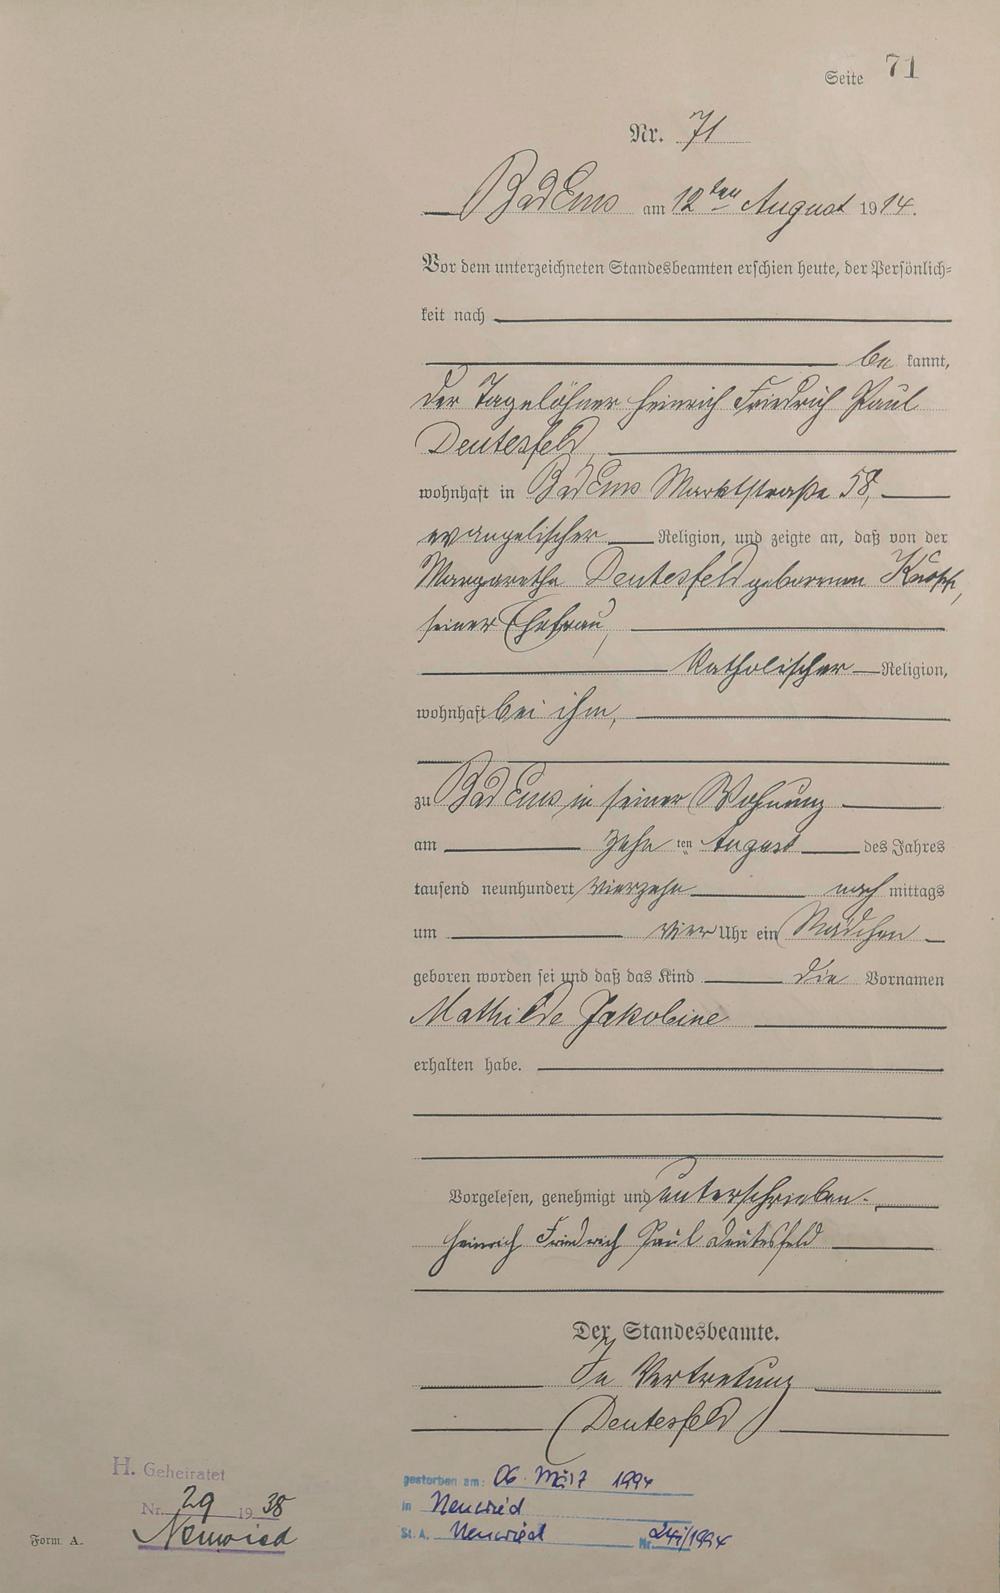 Seite 71
Nr. 71
Bad Ems am 12ten August 1914.
Vor dem unterzeichneten Standesbeamten erschien heute, der Persönlich-
keit nach
be kannt,
der Tagelöhner Heinrich Friedrich Paul
Deutesfeld,
wohnhaft in Bad Ems Marktstraße 58,
evangelischer Religion, und zeigte an, daß von der
Margaretha Deutesfeld geborenen
seiner Ehefrau,
katholischer Religion,
wohnhaft bei ihm,
zu Bad Ems in seiner Wohnung
am zehn ten August des Jahres
tausend neunhundert vierzehn nach mittags
um vier Uhr ein Mädchen
geboren worden sei und daß das Kind die Vornamen
Mathilde Jakobine
erhalten habe.
Vorgelesen, genehmigt und unterschrieben.
Heinrich Friedrich Paul Deutesfeld
Der Standesbeamte.
In Vertretung
Deutesfeld
H. Geheiratet
Nr. 29 1938
Neuwied
Form A.
gestorben am: 06. März 1994
in Neuwied
St.A. Neuwied Nr. /1994